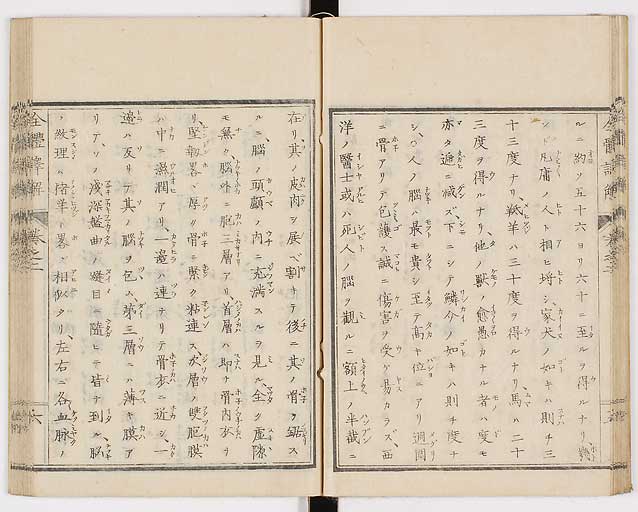 ルニ約ソ五十六ヨリ六十ニ至ルヲ得ルナリ
ンド凡庸ノ人ト相ヒ埒シ家犬ノ如キハ則チ三
十三度ナリ羝羊ハ三十度ヲ得ルナリ馬ハ二十
三度ヲ得ルナリ他ノ獣ノ愈愚カナル者ハ度モ
亦タ逓ニ減ズ下ニシテ鱗介ノ如キハ則チ度ナ
シ〇人ノ脳ハ最モ貴シ至テ高キ位ニアリ週圍
ニ骨アリテ包護ス誠ニ傷害ヲ受ケ易カラズ西
洋ノ醫士或ハ死人ノ脳ヲ觀ルニ額上ノ半截ニ
在リ其ノ皮肉ヲ展ベ割キテ後ニ其ノ骨ヲ鋸ス
ルニ脳ノ頭顱ノ内ニ充満スルヲ見ル全ク虚隙
モ無ク脳外ニ胞三層アリ首層ハ即チ骨内衣ナ
リ堅靭ニ厚ク骨ニ緊ク粘連ス次層ノ雙胞膜
ハ中ニ濕潤アリ一邉ハ連ナリテ骨衣ニ近シ一
邉ハ反リテ其ノ脳ヲ包ム第三層ニハ薄キ膜ア
リテソノ浅深盤曲ノ縫目ニ隨ヒテ皆ナ到ル脳
ノ紋理ハ ト畧ボ相似タリ左右ニ各血脉ノ
全體譯解
巻之二
六